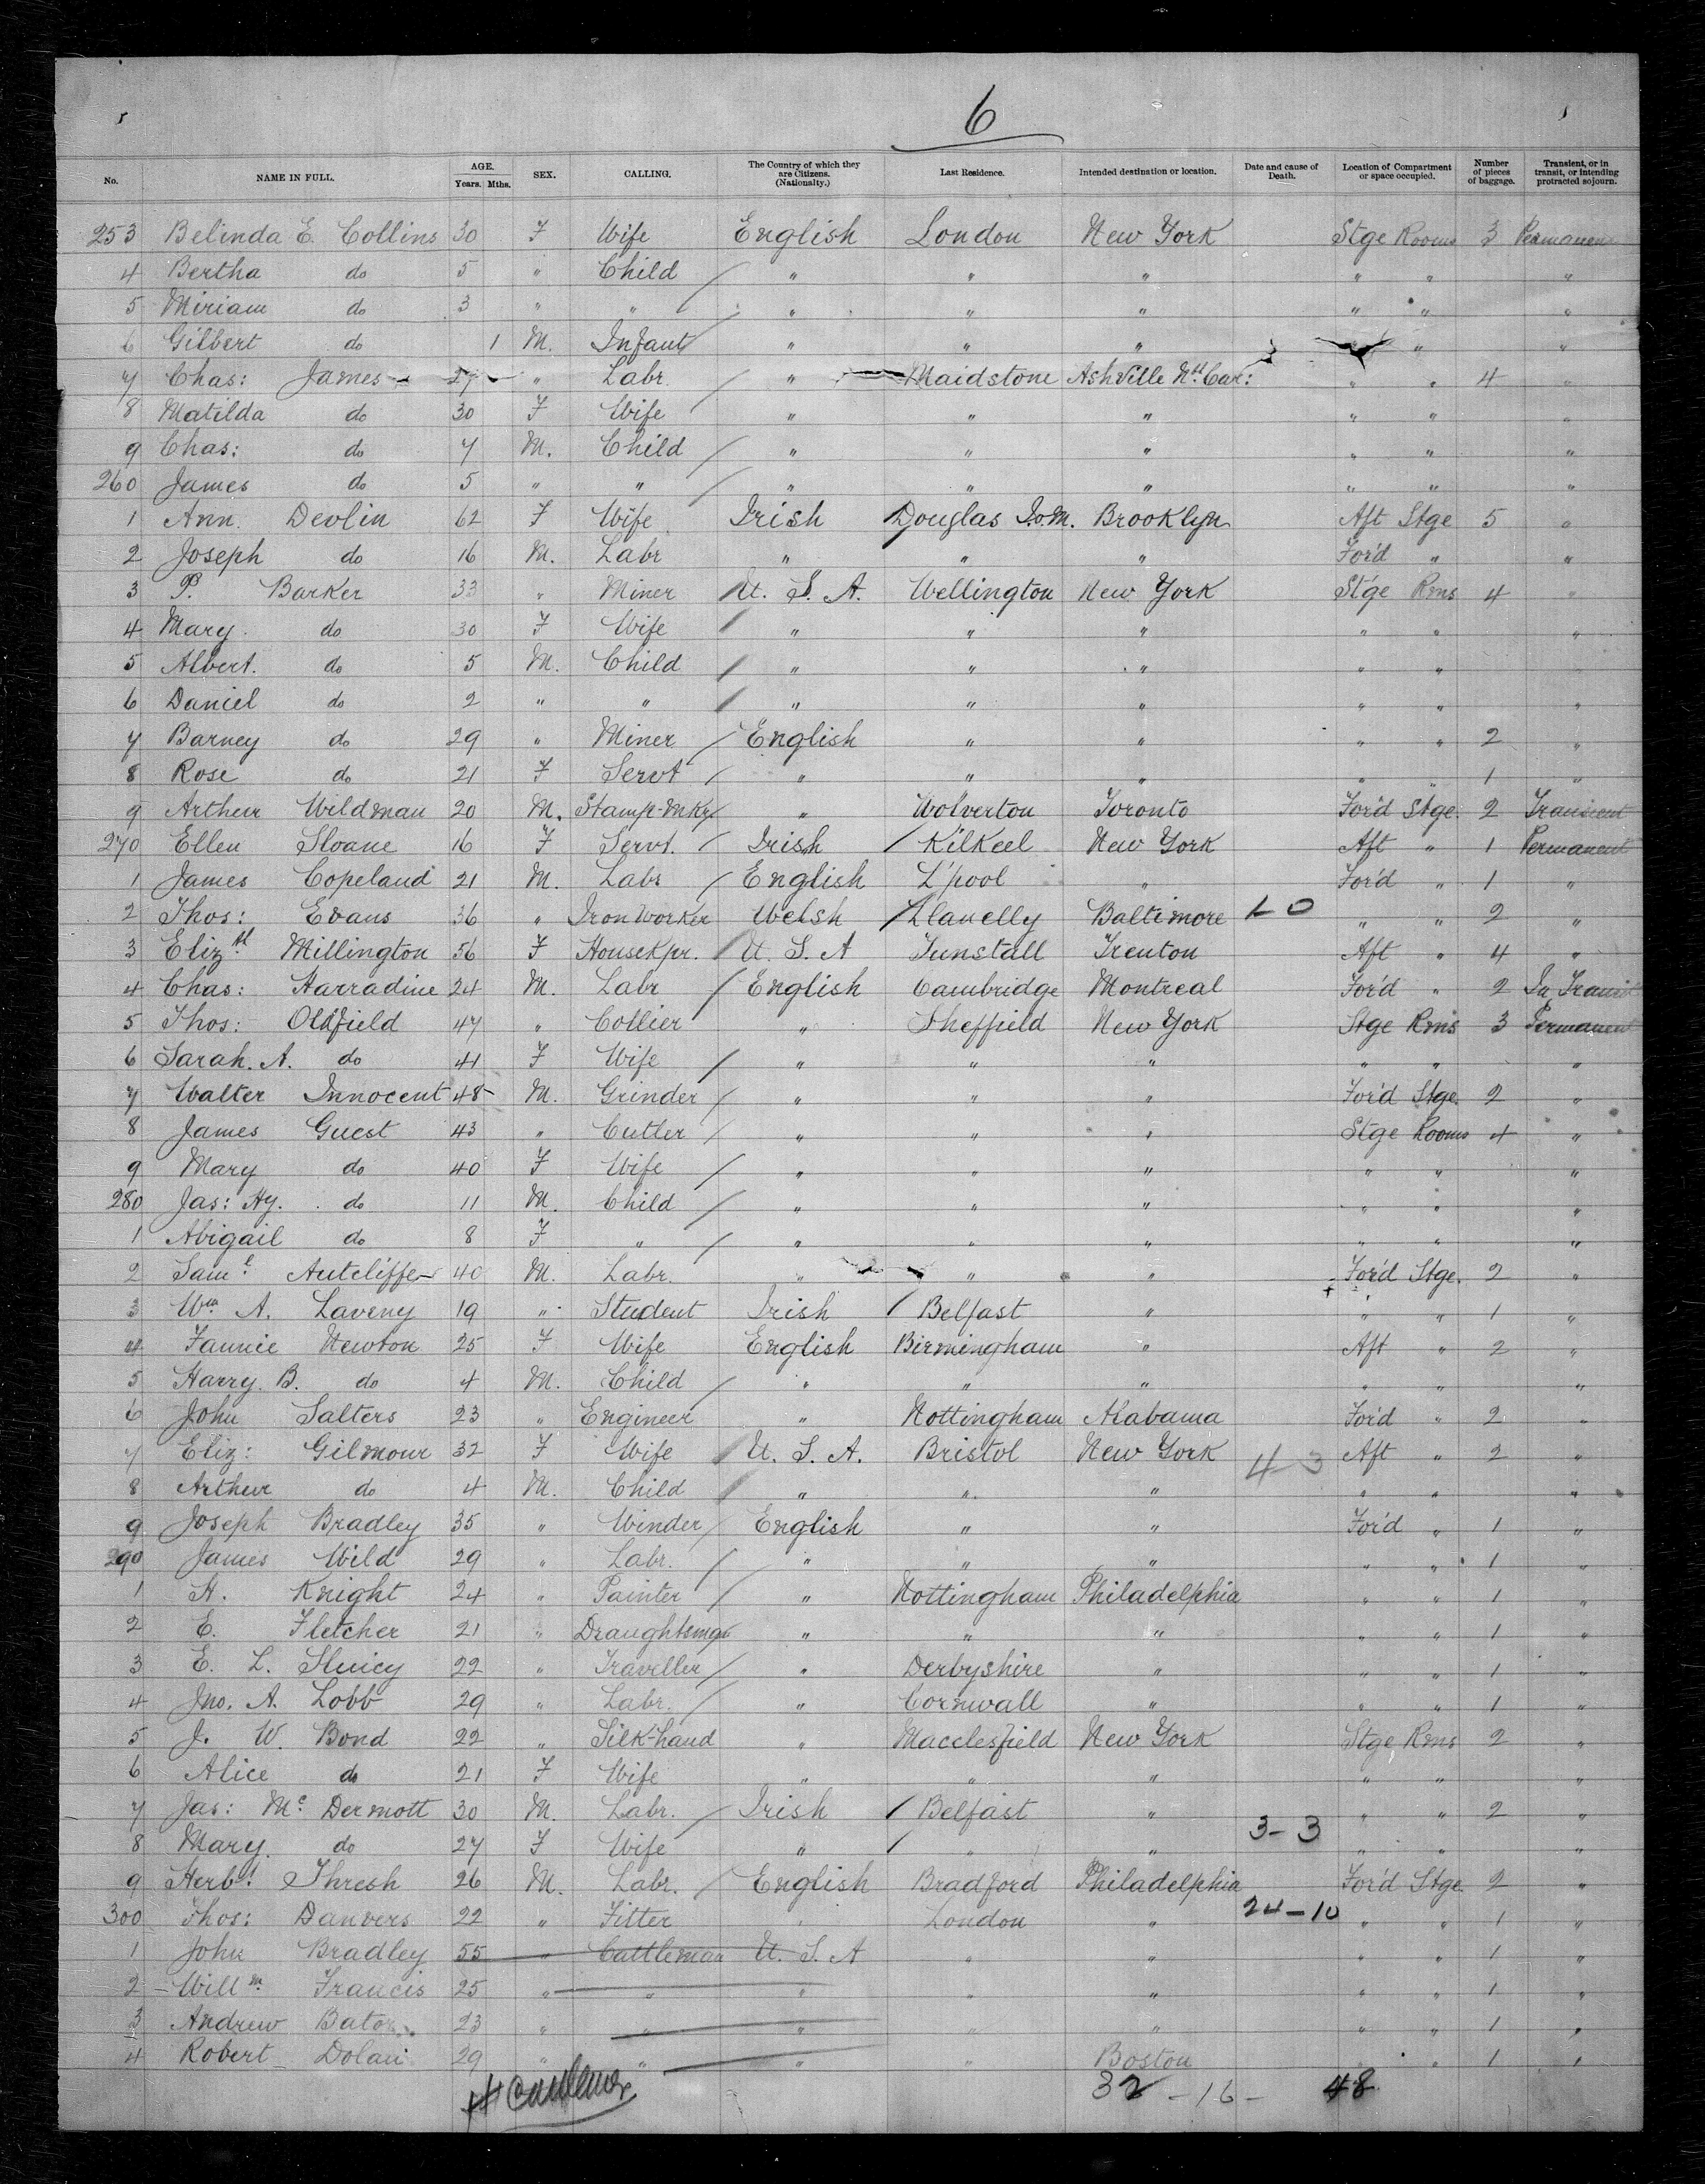 6
No. NAME IN FULL. AGE. Years. Mths. SEX. CALLING. The Country of which they are Citizens. (Nationality.) Last Residence. Intended destination or location. Date and cause of Death. Location of Compartment or space occupied. Number of pieces of baggage. Transient, or in transit, or intending protracted sojourn.
253 Belinda E. Collins 30 F Wife English London New York Stge Rooms 3 Permanent
4 Bertha do 5 " Child " " " " " "
5 Miriam do 3 " " " " " " " "
6 Gilbert do 1 M. Infant " " " " " "
7 Chas: James 27 " Labr. " Maidstone Ashville Nth Car: " " 4 "
8 Matilda do 30 F Wife " " " " " "
9 Chas: do 7 M. Child " " " " " "
260 James do 5 " " " " " " " "
1 Ann. Devlin 62 F Wife Irish Douglas I.o.M. Brooklyn Aft Stge 5 "
2 Joseph do 16 M. Labr " " " For'd " "
3 P. Barker 33 " Miner U. S. A. Wellington New York Stge Rms 4 "
4 Mary. do 30 F Wife " " " " " "
5 Albert. do 5 M. Child " " " " " "
6 Daniel do 2 " " " " " " " "
7 Barney do 29 " Miner English " " " " 2 "
8 Rose do 21 F Servt " " " " " 1 "
9 Arthur Wildman 20 M. Stamp-Mkr " Wolverton Toronto For'd Stge. 2 Transient
270 Ellen Sloane 16 F Servt. Irish Kilkeel New York Aft " 1 Permanent
1 James Copeland 21 M. Labr English L'pool " For'd " 1 "
2 Thos: Evans 36 " Iron Worker Welsh Llanelly Baltimore 1-0 " " 2 "
3 Elizth Millington 56 F HouseKpr. U. S. A Tunstall Trenton Aft " 4 "
4 Chas: Harradine 24 M. Labr English Cambridge Montreal For'd " 2 In Transit
5 Thos: Oldfield 47 " Collier " Sheffield New York Stge Rms 3 Permanent
6 Sarah. A. do 41 F Wife " " " " " "
7 Walter Innocent 48 M. Grinder " " " For'd Stge. 2 "
8 James Guest 43 " Cutler " " " Stge Rooms 4 "
9 Mary do 40 F Wife " " " " " "
280 Jas: Hy. do 11 M. Child " " " " " "
1 Abigail do 8 F " " " " " " "
2 Saml. Autcliffe 40 M. Labr. " " " For'd Stge. 2 "
3 Wm A. Laveny 19 " Student Irish Belfast " " " 1 "
4 Fannie Newton 25 F Wife English Birmingham " Aft " 2 "
5 Harry. B. do 4 M. Child " " " " " "
6 John Salters 23 " Engineer " Nottingham Alabama For'd " 2 "
7 Eliz: Gilmour 32 F Wife U. S. A. Bristol New York 4-3 Aft " 2 "
8 Arthur do 4 M. Child " " " " " "
9 Joseph Bradley 35 " Winder English " " For'd " 1 "
290 James Wild 29 " Labr. " " " " " 1 "
1 H. Knight 24 " Painter " Nottingham Philadelphia " " 1 "
2 E. Fletcher 21 " Draughtsman " " " " " 1 "
3 E. L. 22 " Traveller " Derbyshire " " " 1 "
4 Jno. A. Lobb 29 " Labr. " Cornwall " " " 1 "
5 J. W. Bond 22 " Silk-hand " Macclesfield New York Stge Rms 2 "
6 Alice do 21 F Wife " " " " " "
7 Jas: Mc Dermott 30 M. Labr. Irish Belfast " " " 2 "
8 Mary. do 27 F Wife " " " 3-3 " " "
9 Herbt. Thresh 26 M. Labr. English Bradford Philadelphia For'd Stge 2 "
300 Thos: Danvers 22 " Fitter " London " 24-10 " " 1 "
1 John Bradley 55 " Cattleman U. S. A " " " " 1 "
2 Willm. Francis 25 " " " " " " " 1 "
3 Andrew 23 " " " " " " " 1 "
4 Robert Dolan 29 " " " " Boston " " 1 "
32 - 16 - 48